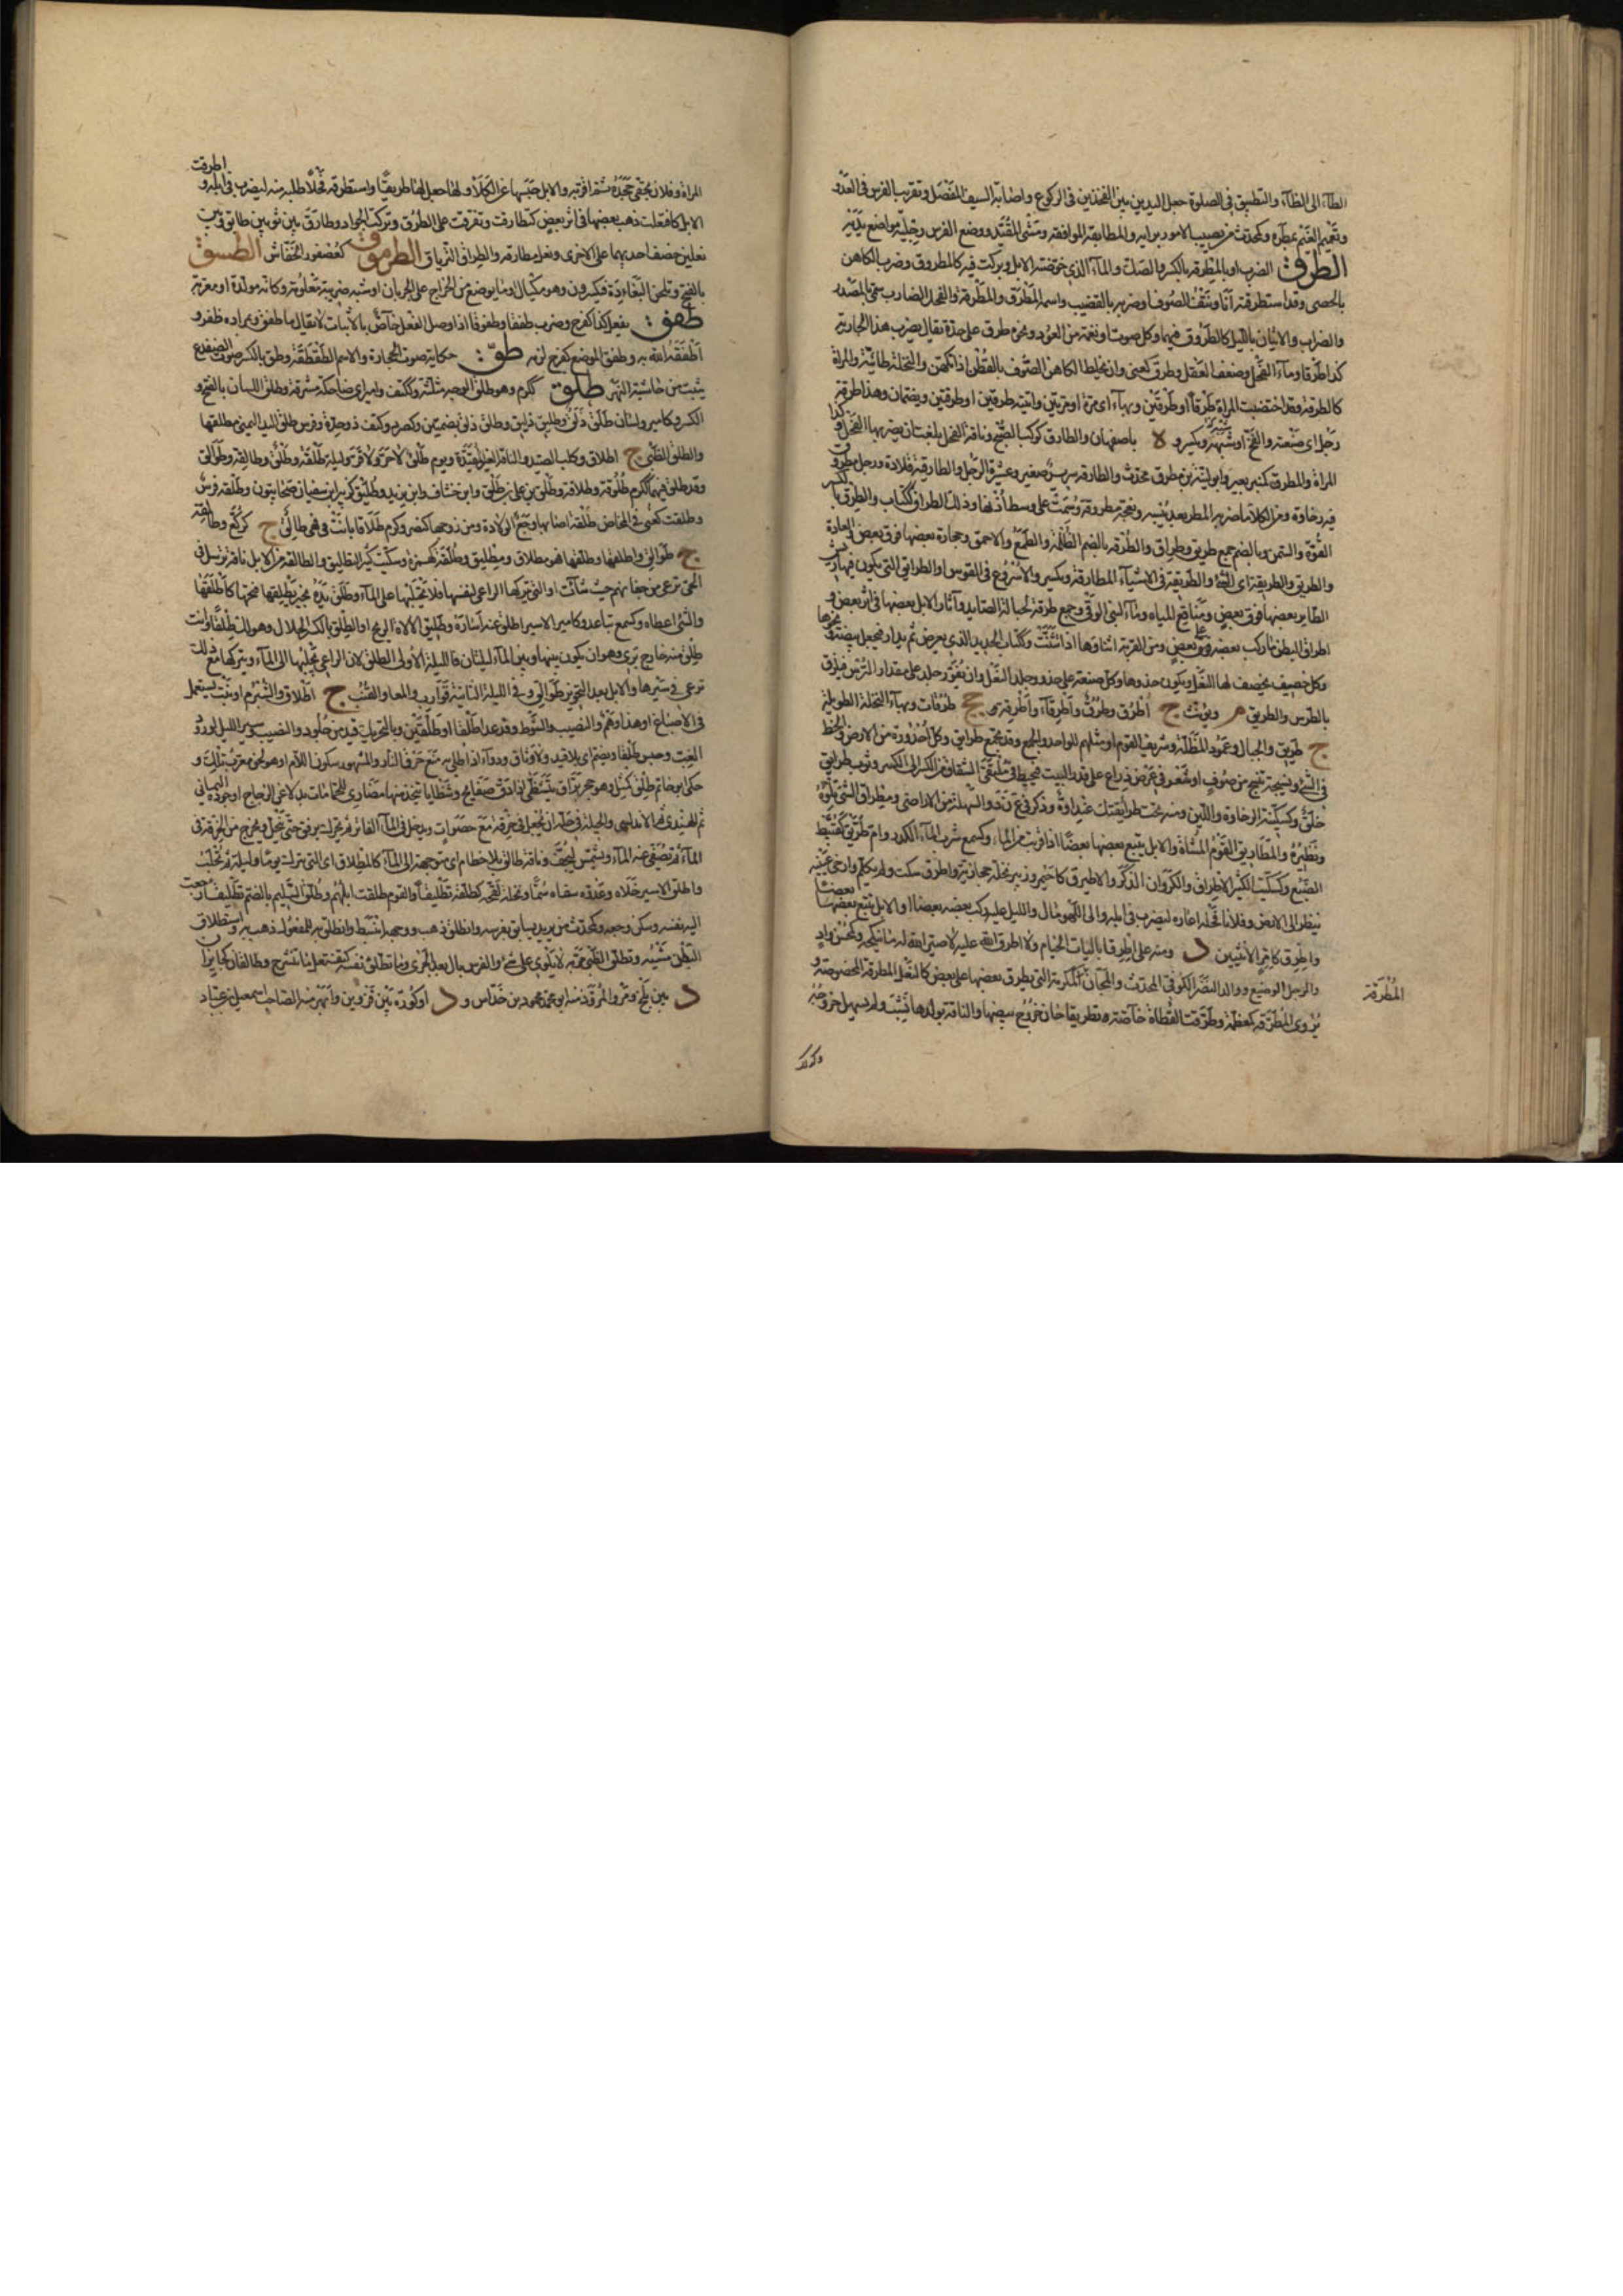 الظآء الى الظآء والتطبيق فى الصلوة جعل اليدين بين الفخذين فى الركوع واصابة السيف المفصل وتقريب الفرس فى العدو
وتعميم الغيم بمطره وكمحدث من يصيب الامور برايه والمطابقة الموافقة ومشى المقيد ووضع الفرس رجليه مواضع يديه
الطرق الضرب او بالمطرقة بالكسر والصك والماء الذى خوضته الابل وبركت فيه كالمطروق وضرب الكاهن
بالحصى وقد استطرقته انا ونتف الصوف او ضربه بالقضيب واسمه المطرق والمطرقة والفحل الضارب سمى بالمصدر
والضراب والاتيان بالليل كالطروق فيهما وكل صوت او نغمة من العود ونحوه طرق على حدة يقال يضرب هذا الجارية
كذا طرقا وماء الفحل وضعف العقل وطرق كعنى وان يخلط الكاهن الصوف بالقطن اذا تكهن والنخلة طائية والمرة
كالطرقة وقد اختضبت المراة طرقا او طرقين وبهاء اى مرة او مرتين واتيته طرقين او طرقتين ويضمان وهذا طرقة
رجل اى صنعته والفخ او شبهه ويكسر و ة باصفهان والطارق كوكب الصبح وناقة الفحل بلغت ان يضربها الفحل و كذا
المراة والمطرق كمنبر بعير وابو لينة بن مطرق محدث والطارقة سرير صغير وعشيرة الرجل والطارقية قلادة ورجل مطروق
فيه رخاوة ومن الكلا ما ضربه المطر بعد يبسه ونعجة مطروقة وسمت على وسط اذنها وذلك الطراق ككتاب والطرق بالكسر
القوة والسمن وبالضم جمع طريق وطراق والطرقة بالضم الظلمة والطمع والاحمق وحجارة بعضها فوق بعض والعادة
والطريق والطريقة الى الشىء والطريقة فى الاشياء المطارقة ويكسر والاسروع فى القوس او الطرائق التى يكون فيها
الطاير بعضها فوق بعض ومناقع المياه وماء قرب الوقى وجمع طرقة لحبالة الصايد وآثار الابل بعضها فى اثر بعض و
اطراق البطن ما ركب بعضه على بعض ومن القربة اثناوها اذا تثنت وككتاب الحديد الذى يعرض ثم يدار فيجعل بيضة ونحوها
وكل خصيف يخصف لها النعل ويكون حذوها وكل صنعة على حذو وجلد النعل وان يقور جلد على مقدار الترس فيلزق
بالترس والطريق م ويؤنث ج اطرق وطرق واطرقاء واطرقة جج طرقات وبهاء النخلة الطويلة
ج طريق والحال وعمود المظلة وشريف القوم او مثلهم للواحد والجمع وقد يجمع طرائق وكل اخدودة من الارض والخط
فى الشىء ونسيجة تنسج من صوف او شعر فى عرض ذراع على قدر البيت فيخيط فى ملتقى الشقاق من الكسر الى الكسر وثوب طرائق
خلق وكسكينة الرخاوة واللين ومنه تحت طريقتك عنداوة وذكر فى ع ن د والسهلة من الاراضى ومطراق الشىء تلوه
ونظيره والمطاريق القوم المشاة والابل يتبع بعضها بعضا اذا قربت من الماء وكسمع شرب الماء الكدر وام طريق كقبيط
الضبع وكسكيت الكثير الاطراق والكروان الذكر والاطيرق كاخيمر وزبير نخلة حجازية واطرق سكت ولم يتكلم وارخى عينيه
ينظر الى الارض وفلانا فحله اعاره ليضرب فى ابله والى اللهو مال والليل عليه ركب بعضه بعضا والابل تبع بعضها بعضا
واطرق كاثمر الاثنين د ومنه على اطرقا باليات الخيام ولا اطرق الله عليه لا صير الله له ما ينكحه وكمحسن واد
والرجل الوضيع ووالد النضر الكوفى المحدث والمجان كمكرمة التى يطرق بعضها على بعض كالنعل المطرقة المخصوفة و
يروى المطرقة كمعظمة وطرقت القطاة خاصة تطريقا حان خروج بيضها والناقة بولدها نشبت ولم يسهل خروجه
المطرقة
وكذلك
المراة وفلان بحقى جحده ثم اقر به والابل حبسها عن الكلاء ولها جعل لها طريقا واستطرقه فحلا طلبه منه ليضرب فى ابله و اطرقت
الابل كافتعلت ذهب بعضها فى اثر بعض كتطارقت وتفرقت على الطرق وتركت الجواد وطارق بين ثوبين طابق وبين
نعلين خصف احديهما على الاخرى ونعل مطارقة والطراق الترياق الطرموق كعصفور الخفاش الطسق
بالفتح ويلحن البغاددة فيكسرون وهو مكيال او ما يوضع من الخراج على الجربان او شبه ضريبة معلومة وكانه مولد او معرب
طفق يفعل كذا كفرح وضرب طفقا وطفوقا اذا واصل الفعل خاص بالاثبات لا يقال ما طفق وبمراده ظفر و
اطفقه الله به وطفق الموضع كفرح لزمه طق حكاية صوت الحجارة والاسم الطقطقة وطق بالكسر صوت الضفدع
يثب من حاشية النهر طلق ككرم وهو طلق الوجه مثلثة وككتف وامير اى ضاحكه مشرقه وطلق اللسان بالفتح و
الكسر وكامير ولسان طلق ذلق وطليق ذليق وطلق ذلق بضمتين وكصرد وكتف ذو حدة وفرس طلق اليد اليمنى مطلقها
والطلق الظبى ج اطلاق وكلب الصيد والناقة الغير المقيدة ويوم طلق لا حر ولا قر وليلة طلقة وطلق وطالقة وطوالق
وقد طلق فيهما ككرم طلوقة وطلاقة وطلق بن على بن طلق وابن خشاف وابن يزيد وطليق كزبير ابن سفيان صحابيون وطلقة فرس
وطلقت كعنى فى المخاض طلقا اصابها وجع الولادة ومن زوجها كنصر وكرم طلاقا بانت فهى طالق ج كركع وطالقة
ج طوالق واطلقها وطلقها فهو مطلاق ومطليق وطلقة كهمزة وسكيت كثير التطليق والطالقة من الابل ناقة ترسل فى
الحى ترعى من جنابهم حيث شاءت او التى يتركها الراعى لنفسها فلا يحتلبها على الماء وطلق يده بخير يطلقها فتحها كاطلقها
والشىء اعطاه وكسمع تباعد وكامير الاسير اطلق عنه اساره وطليق الاله الريح والطلق بالكسر الحلال وهو لك طلقا وانت
طلق منه خارج برىء وهو ان يكون بينها وبين الماء ليلتان فالليلة الاولى الطلق لان الراعى يخليها الى الماء ويتركها مع ذلك
ترعى فى سيرها والابل بعد التحويز طوالق وفى الليلة الثانية قوارب والمعا والقتب ج اطلاق والشبرم او نبت يستعمل
فى الاصباغ او هذا وهم والنصيب والشوط وقد عدا طلقا او طلقين وبالتحريك قيد من جلود والنصيب وسير الليل لورد
الغب وحبس طلقا ويضم اى بلا قيد ولا وثاق ودواء اذا طلى به منع حرق النار والمشهور سكون اللام او هو لحن معرب تلك و
حكى ابو حاتم طلق كمثل وهو حجر براق يتشظى اذا دق صفايح وشظايا يتخذ منها مضاوى للحمامات بدلا عن الزجاج واجوده اليمانى
ثم الهندى ثم الاندلسى والحيلة فى حله ان يجعل فى خرقة مع حصوات ويدخل فى الماء الفاتر ثم يحرك برفق حتى ينحل ويخرج من الخرقة فى
الماء ثم يصفى عنه الماء ويشمس ليجف وناقة طالق بلا خطام اى متوجهة الى الماء كالمطلاق او التى تترك يوما وليلة ثم تحلب
واطلق الاسير خلاه وعدوه سقاه سما ونخله لقحه كطلقه تطليقا والقوم طلقت ابلهم وطلق السليم بالضم تطليقا رجعت
اليه نفسه وسكن وجعه وكمحدث من يريد يسابق بفرسه وانطلق ذهب ووجهه انبسط وانطلق به للمفعول ذهب به واستطلاق
البطن مشيه وتطلق الظبى مر لا يلوى على شىء والفرس بال بعد الجرى وما تطلق نفسه كتفتعل ما تنشرح وطالقان كخابران
د بين بلخ ومرو الروذ منه ابو محمد محمود بن خداش و د او كورة بين قزوين وابهر منه الصاحب اسمعيل بن عباد